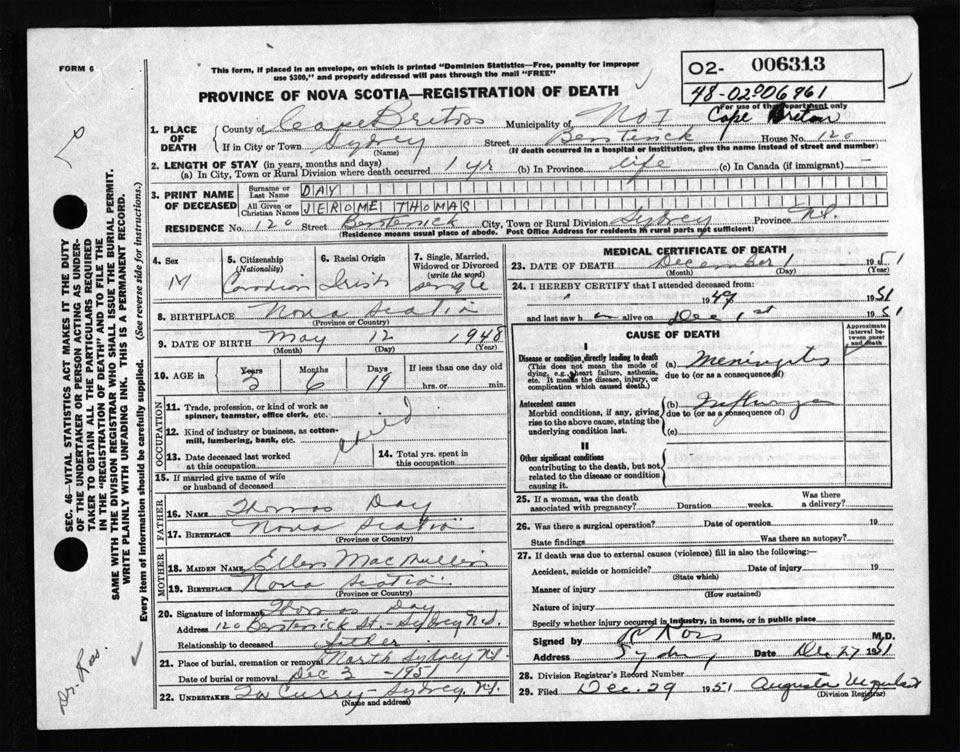 FORM 6
This form, if placed in an envelope, on which is printed "Dominion Statistics—Free, penalty for improper
use $300," and properly addressed will pass through the mail "FREE"
O2- 006313
48-02-006961
For use of the Department only
PROVINCE OF NOVA SCOTIA—REGISTRATION OF DEATH
Cape Breton
1. PLACE OF DEATH
County of Cape Breton Municipality of No 1
If in City or Town Sydney Street House No. 120
(Name) (If death occurred in a hospital or institution, give the name instead of street and number)
2. LENGTH OF STAY (in years, months and days)
(a) In City, Town or Rural Division where death occurred 1 yr (b) In Province life (c) In Canada (if immigrant) -
3. PRINT NAME OF DECEASED
Surname or Last Name DAY
All Given or Christian Names JEROME THOMAS
RESIDENCE No. 120 Street City, Town or Rural Division Sydney Province N.S.
(Residence means usual place of abode. Post Office Address for residents in rural parts not sufficient)
4. Sex M
5. Citizenship (Nationality) Canadian
6. Racial Origin Irish
7. Single, Married, Widowed or Divorced (write the word) single
8. BIRTHPLACE Nova Scotia
(Province or Country)
9. DATE OF BIRTH May 12 1948
(Month) (Day) (Year)
10. AGE in Years 3 Months 6 Days 19 If less than one day old
hrs. or min.
OCCUPATION
11. Trade, profession or kind of work as spinner, teamster, office clerk, etc.
12. Kind of industry or business, as cotton-mill, lumbering, bank, etc.
child
13. Date deceased last worked at this occupation
14. Total yrs. spent in this occupation
15. If married give name of wife or husband of deceased
FATHER
16. NAME Thomas Day
17. BIRTHPLACE Nova Scotia
(Province or Country)
MOTHER
18. MAIDEN NAME Ellen MacMullin
19. BIRTHPLACE Nova Scotia
(Province or Country)
20. Signature of informant Thomas Day
Address 120 St. - Sydney N.S.
Relationship to deceased father
21. Place of burial, cremation or removal North Sydney N.S.
Date of burial or removal Dec 3 - 1951
22. UNDERTAKER Curry - Sydney, N.S.
(Name and address)
MEDICAL CERTIFICATE OF DEATH
23. DATE OF DEATH December 1 1951
(Month) (Day) (Year)
24. I HEREBY CERTIFY that I attended deceased from:
1949 1951
and last saw h m alive on Dec 1st 1951
CAUSE OF DEATH
Approximate interval between onset and death
I
Disease or condition directly leading to death
(This does not mean the mode of dying, e.g., heart failure, asthenia, etc. It means the disease, injury, or complication which caused death.)
(a) Meningitis
due to (or as a consequence of)
Antecedent causes
Morbid conditions, if any, giving rise to the above cause, stating the underlying condition last.
(b) Influenza
due to (or as a consequence of)
(c)
II
Other significant conditions
contributing to the death, but not related to the disease or condition causing it.
25. If a woman, was the death associated with pregnancy? Duration weeks. Was there a delivery?
26. Was there a surgical operation? Date of operation 19
State findings Was there an autopsy?
27. If death was due to external causes (violence) fill in also the following:—
Accident, suicide or homicide? Date of injury 19
(State which)
Manner of injury
(How sustained)
Nature of injury
Specify whether injury occurred in industry, in home, or in public place
Signed by Ross M.D.
Address Sydney Date Dec 27 1951
28. Division Registrar's Record Number
29. Filed Dec. 29 1951 Augusta
(Division Registrar)
SEC. 46—VITAL STATISTICS ACT MAKES IT THE DUTY
OF THE UNDERTAKER OR PERSON ACTING AS UNDER-
TAKER TO OBTAIN ALL THE PARTICULARS REQUIRED
IN THE "REGISTRATION OF DEATH" AND TO FILE THE
SAME WITH THE DIVISION REGISTRAR WHO SHALL ISSUE THE BURIAL PERMIT.
WRITE PLAINLY WITH UNFADING INK. THIS IS A PERMANENT RECORD.
Every item of information should be carefully supplied. (See reverse side for instructions.)
Dr. Ross.